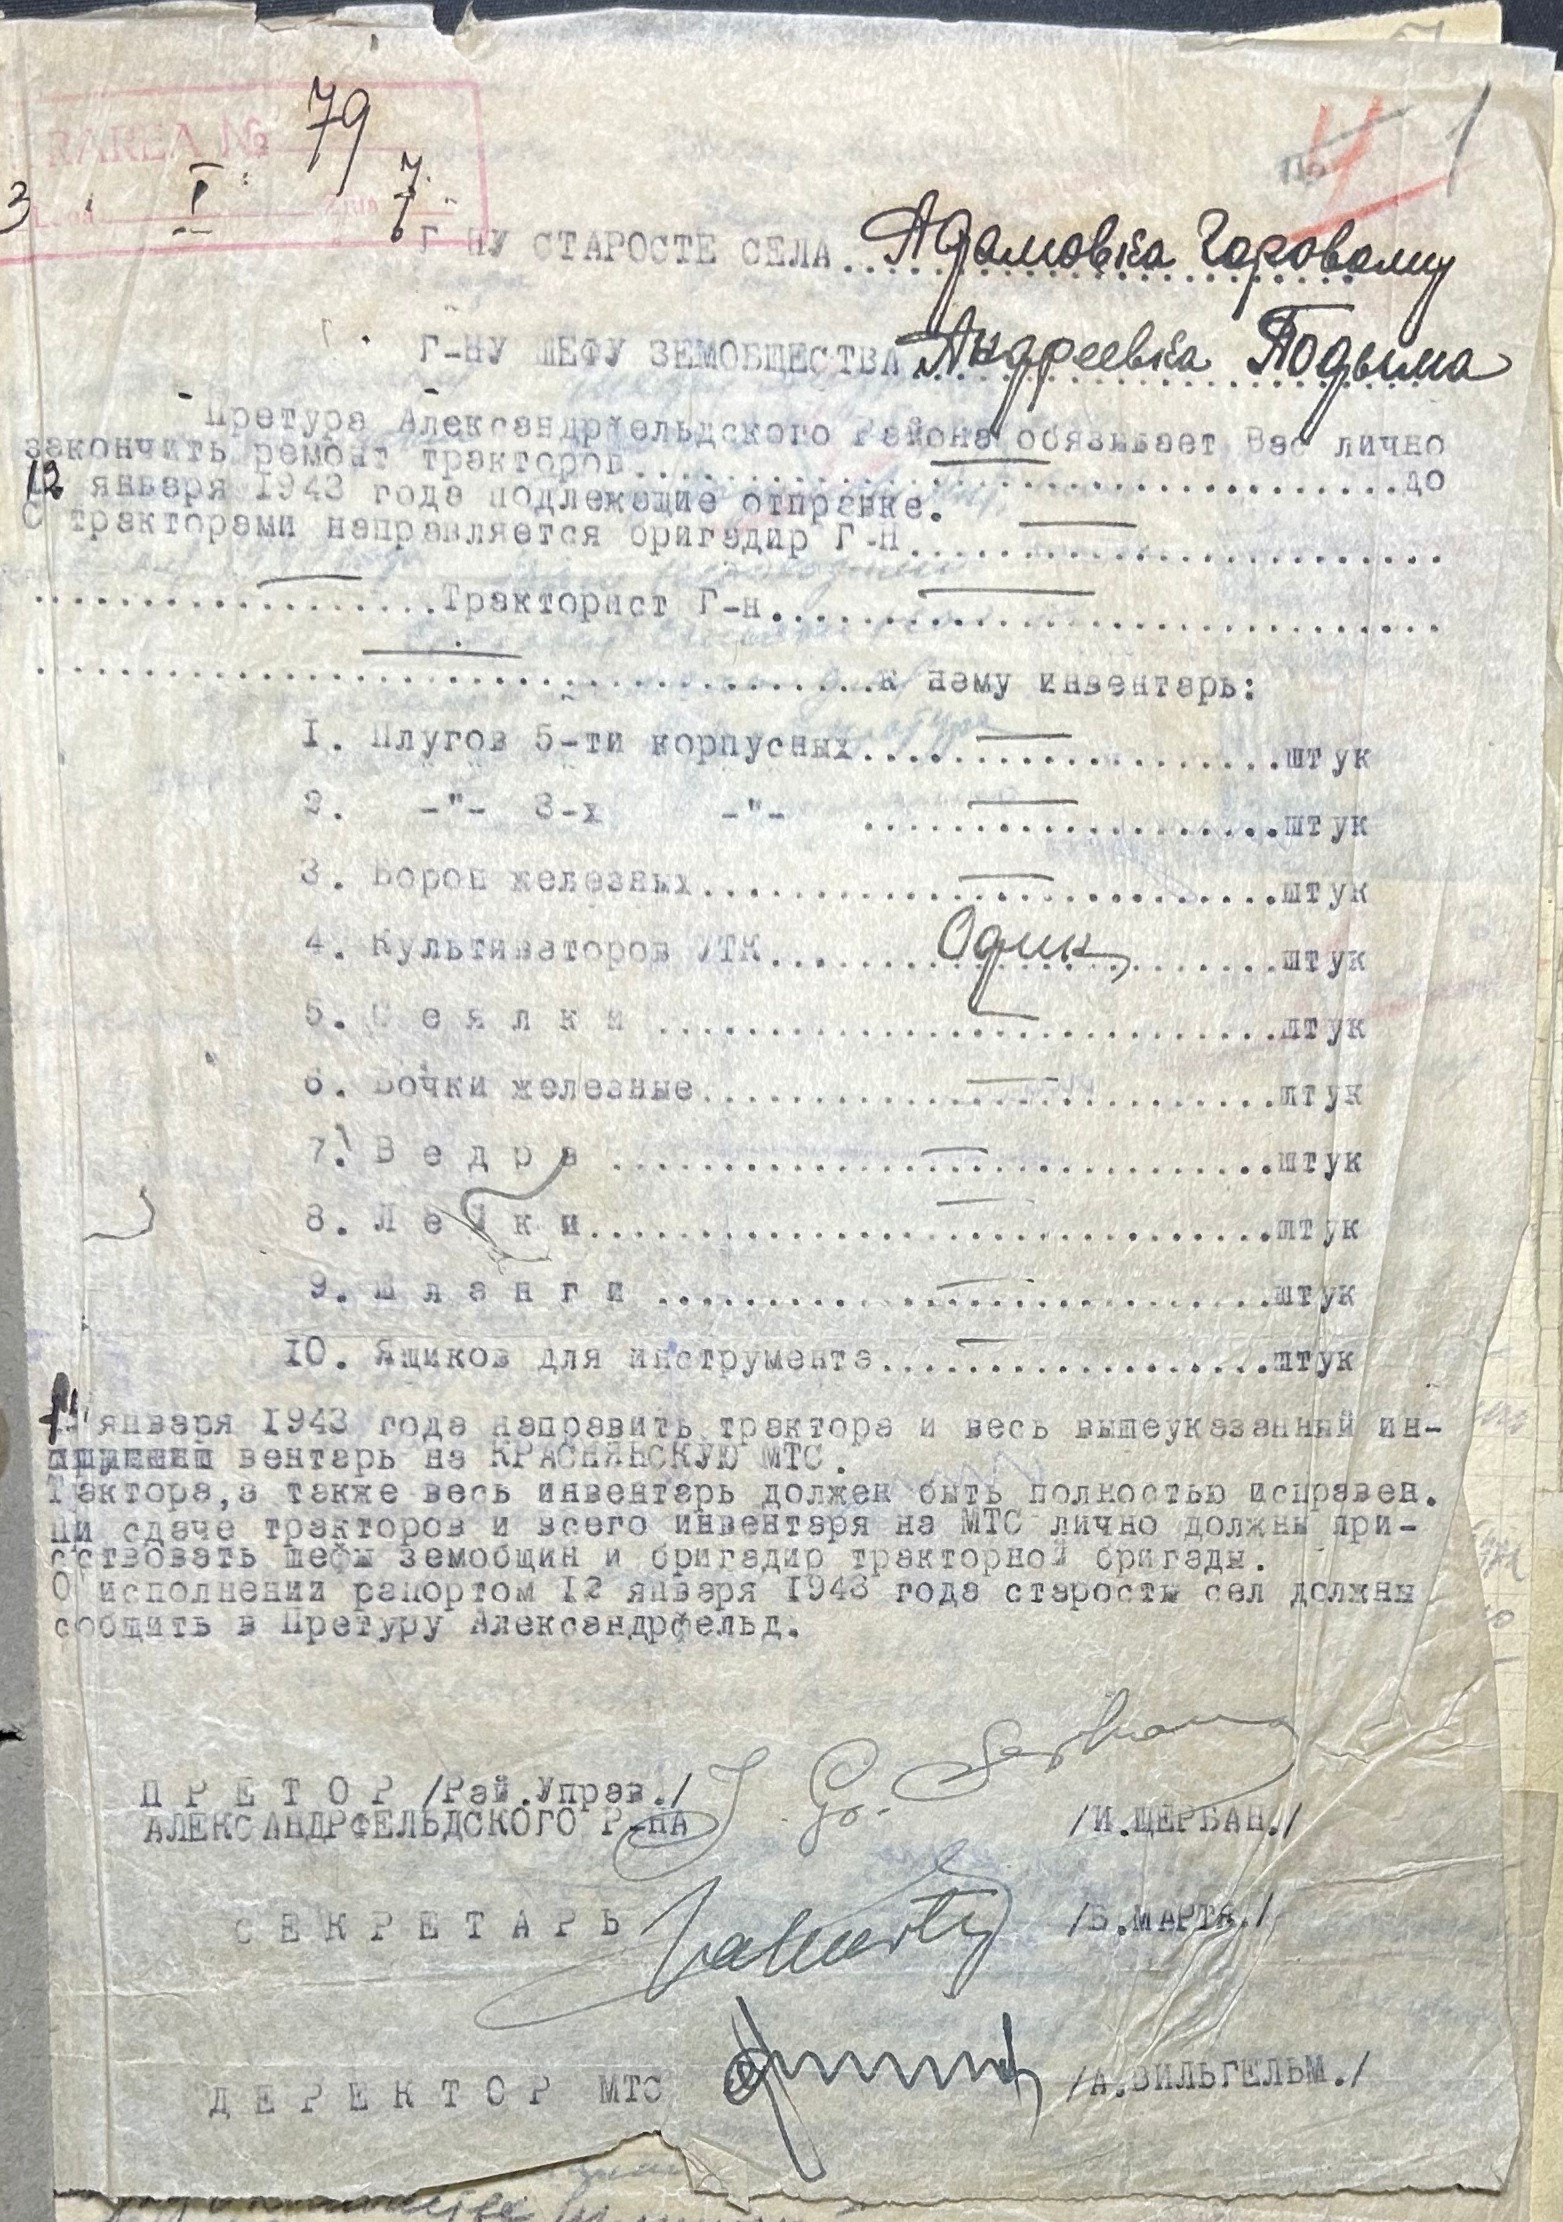 79
7
3 I 7
1
Г-НУ СТАРОСТЕ СЕЛА Адамовка Горовому
Г-НУ ШЕФУ ЗЕМОБЩЕСТВА Андреевка Подыма
Претура Александрфельдского Района обязывает Вас лично
закончить ремонт тракторов..........................до
12 января 1943 года подлежащие отправке.
С тракторами направляется бригадир Г-Н..........................
..................Тракторист Г-н..............................
.....................................к нему инвентарь:
1. Плугов 5-ти корпусных...................штук
2. -"- 3-х -"- ...................штук
3. Борон железных..........................штук
4. Культиваторов УТК Один штук
5. С е я л к и ............................штук
6. Бочки железные..........................штук
7. В е д р а ..............................штук
8. Л е й к и...............................штук
9. Ш л а н г и ............................штук
10. Ящиков для инструмента.................штук
января 1943 года направить трактора и весь вышеуказанный ин-
вентарь на КРАСНЯНСКУЮ МТС.
Трактора,а также весь инвентарь должен быть полностью исправен.
Пи сдаче тракторов и всего инвентаря на МТС лично должны при-
сствовать шефы земобщин и бригадир тракторной бригады.
О исполнении рапортом 12 января 1943 года старосты сел должны
сообщить в Претуру Александрфельд.
П Р Е Т О Р /Рай.Управ./
АЛЕКСАНДРФЕЛЬДСКОГО Р-НА /И.ЩЕРБАН./
С Е К Р Е Т А Р Ь /Б.МАРТА./
Д Е Р Е К Т О Р МТС /А.ВИЛЬГЕЛЬМ./